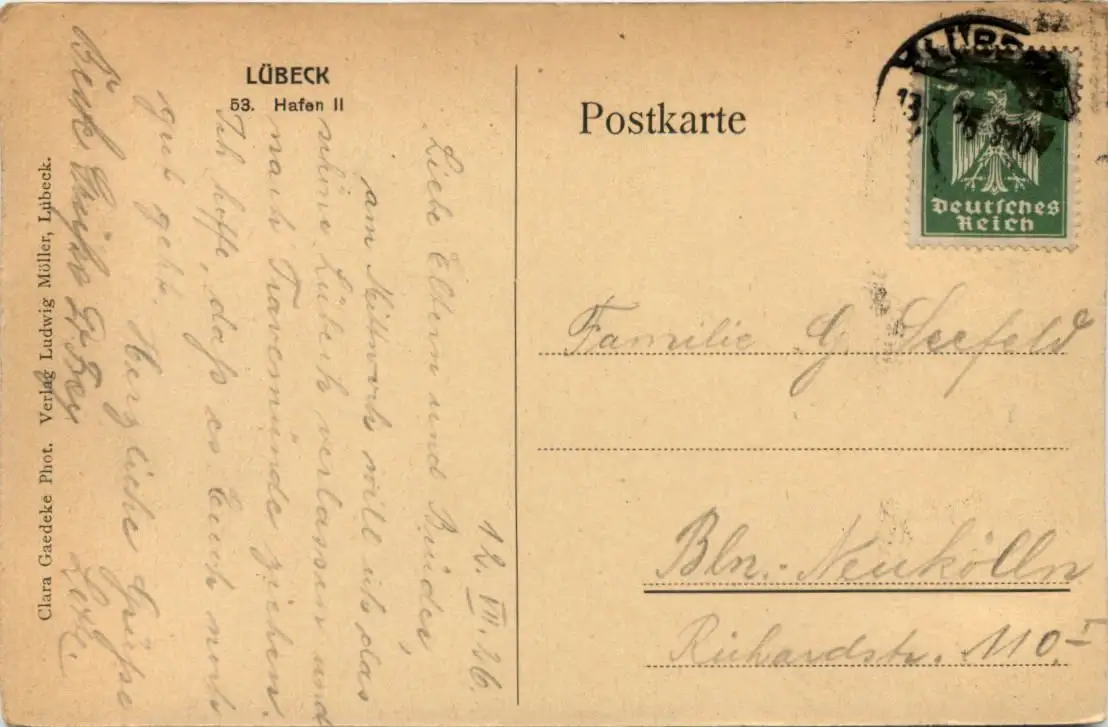 LÜBECK
53. Hafen II
Postkarte
LÜBECK
Deutsches
Reich
12. VII. 26.
Liebe Eltern und Brüder,
am Mittwoch will ich das
schöne Lübeck verlassen und
nach Travemünde ziehen.
Ich hoffe, daß es Euch noch
gut geht.
Herzliche Grüße
Familie G. Seefeld
Bln.-Neukölln
Richardstr. 110.I
Clara Gaedeke Phot. Verlag Ludwig Möller, Lübeck.